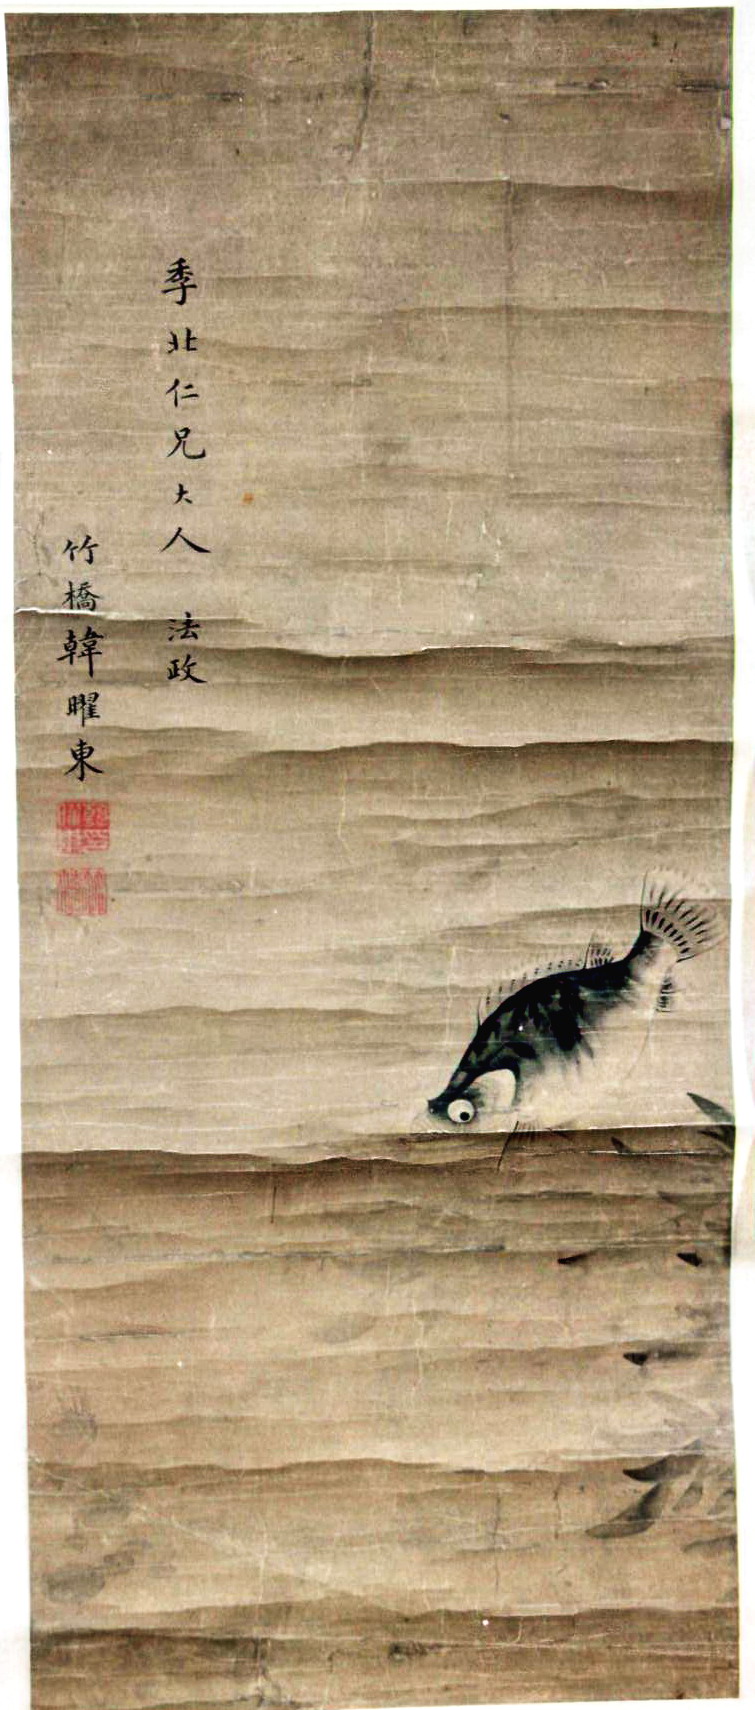 季北仁兄大人 法政
竹橋韓曜東